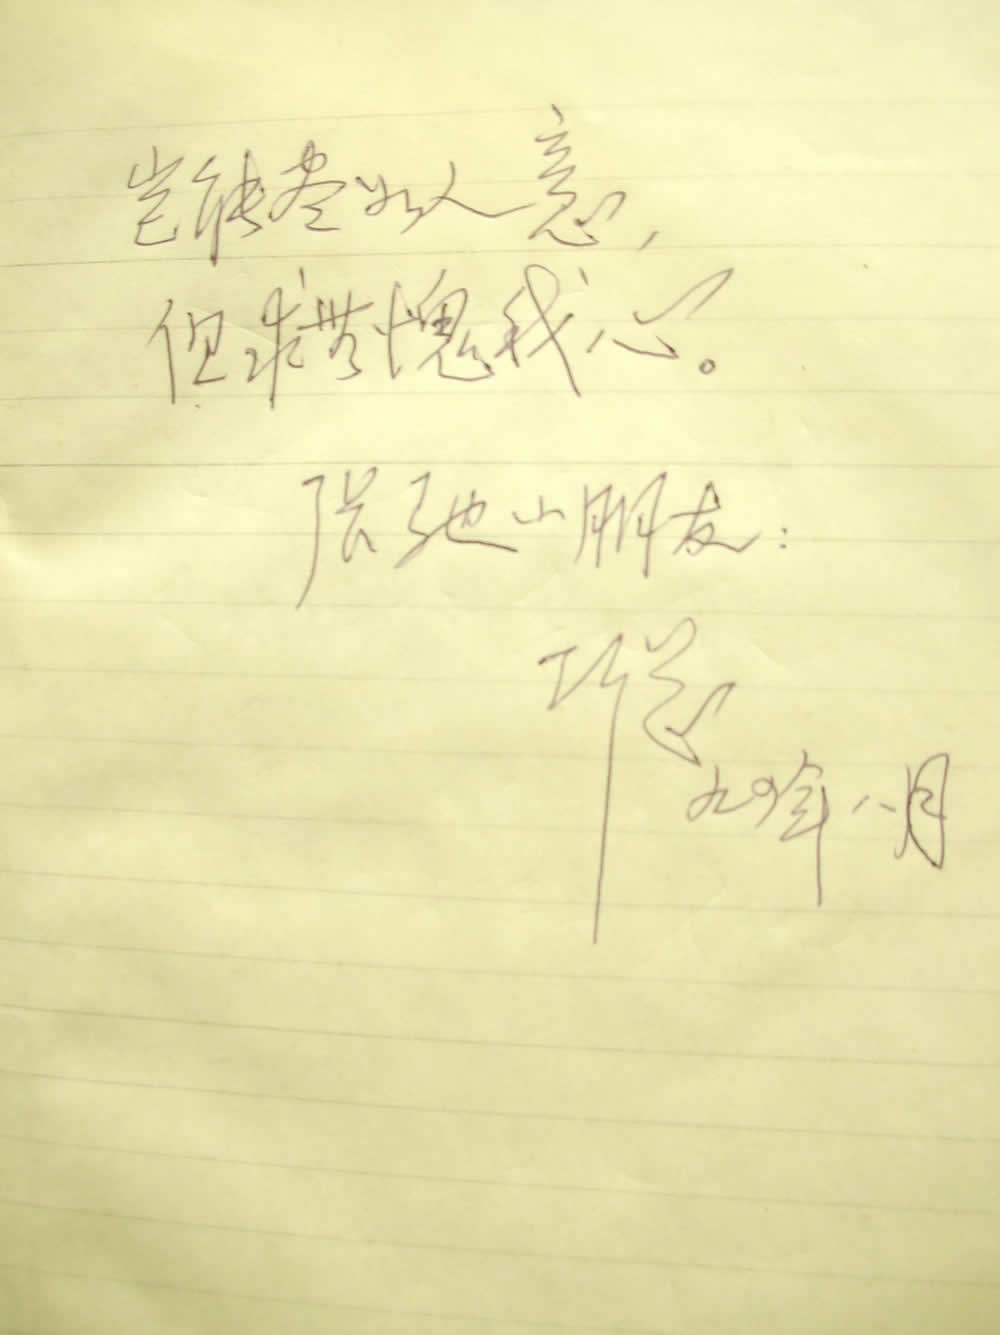 岂能尽如人意，
但求无愧我心。
张弛小朋友：
九四年八月